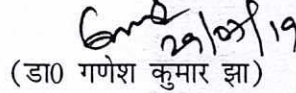 29/03/19
(डा0 गणेश कुमार झा)